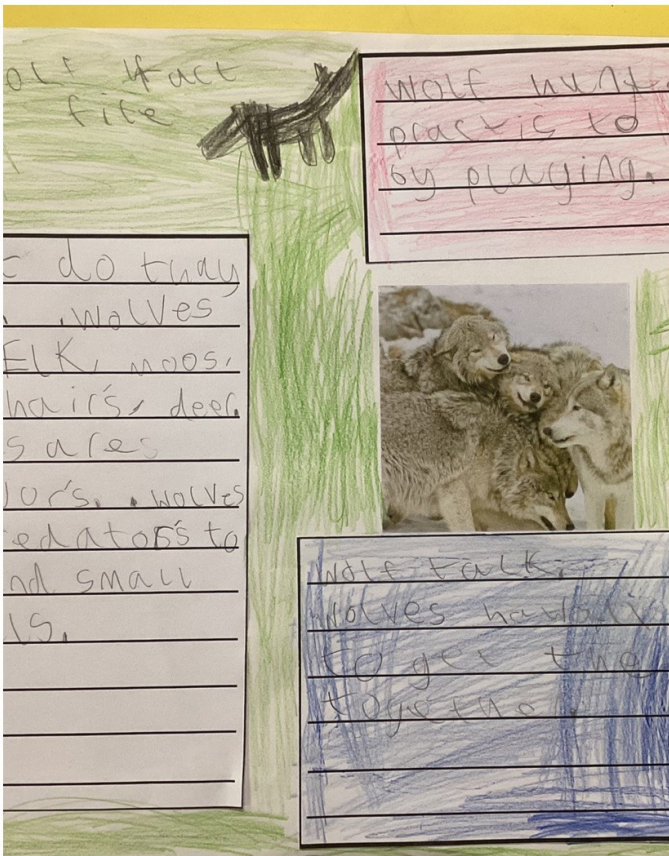 olf fact
file
wolf hunt
practis to
by playing.
t do thay
. wolves
ELK, moos,
hair's, deer.
s ares
ors. . wolves
edators to
nd small
ls.
Wolf talk.
Wolves
to get the
together